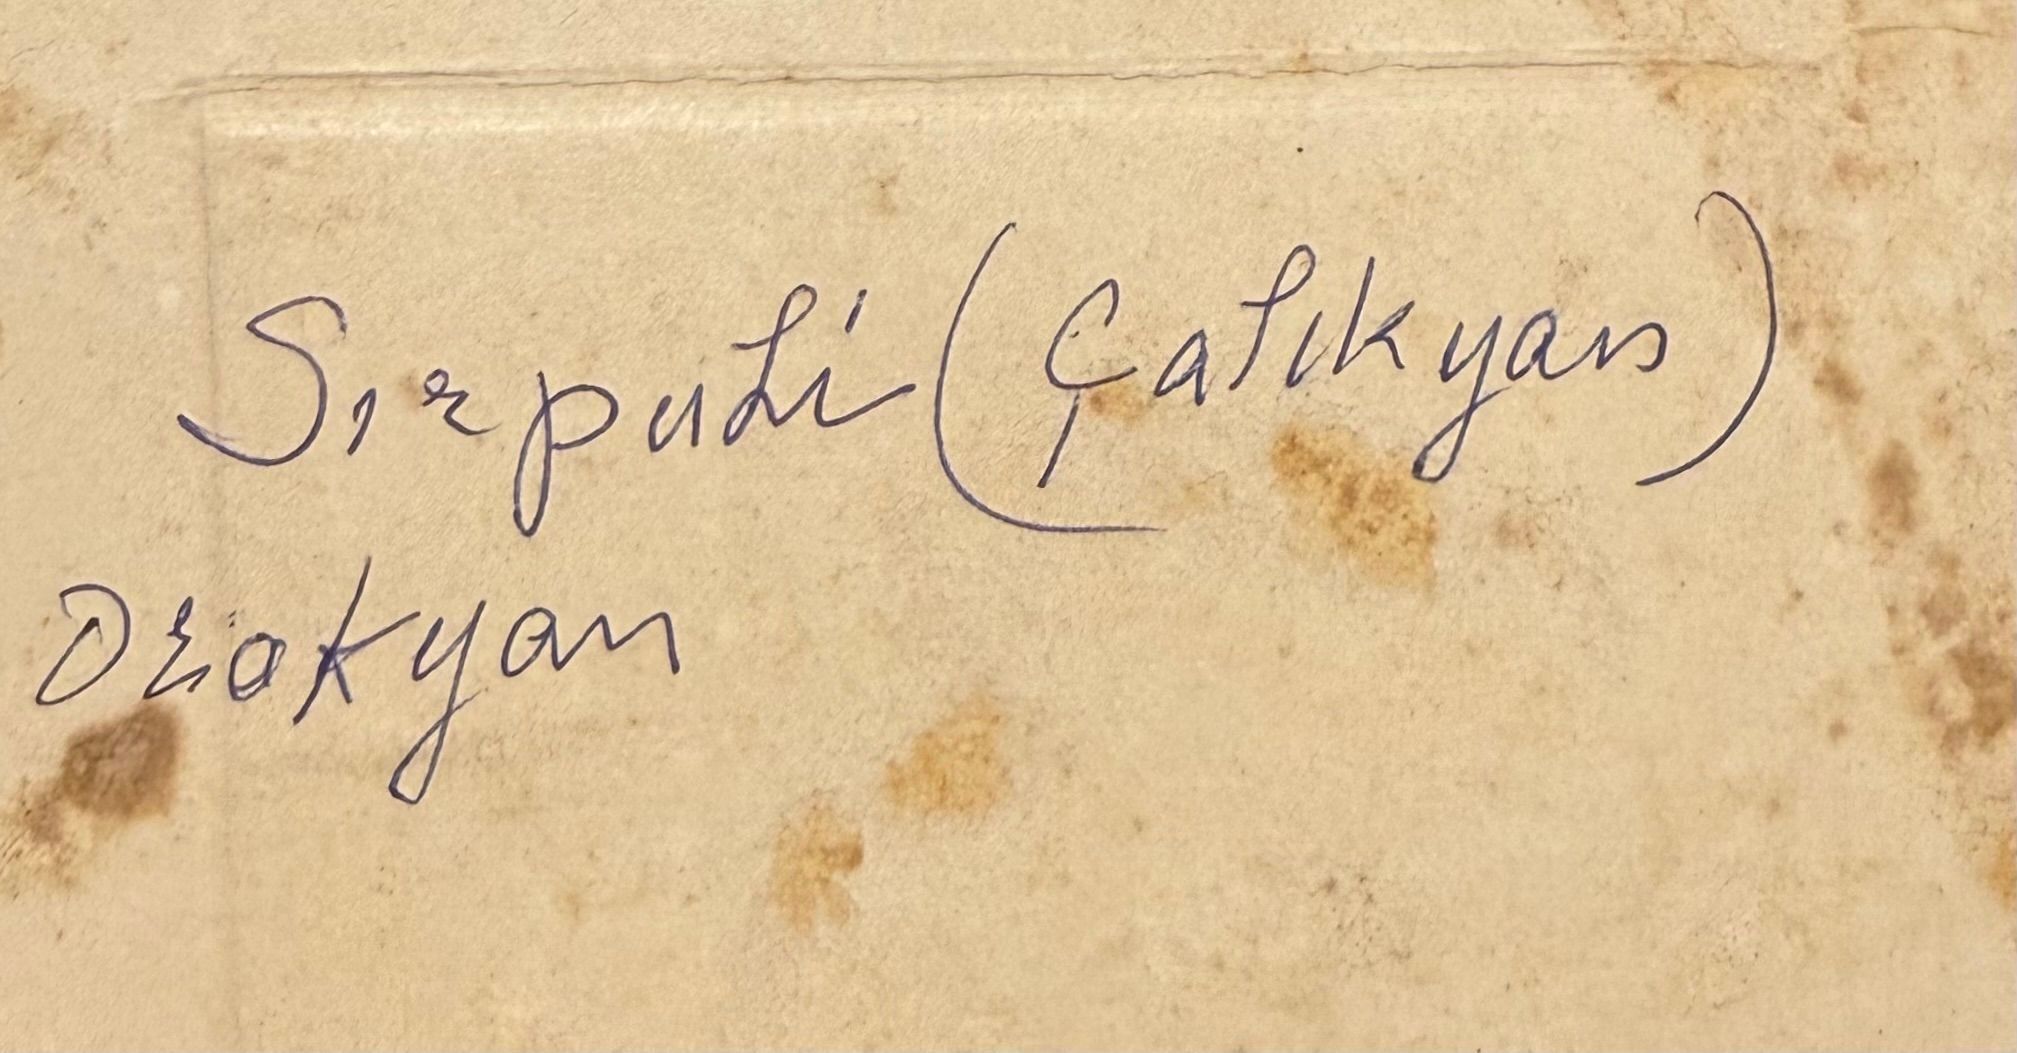 Sırpuhi (Çalıkyan)
Ozakyan